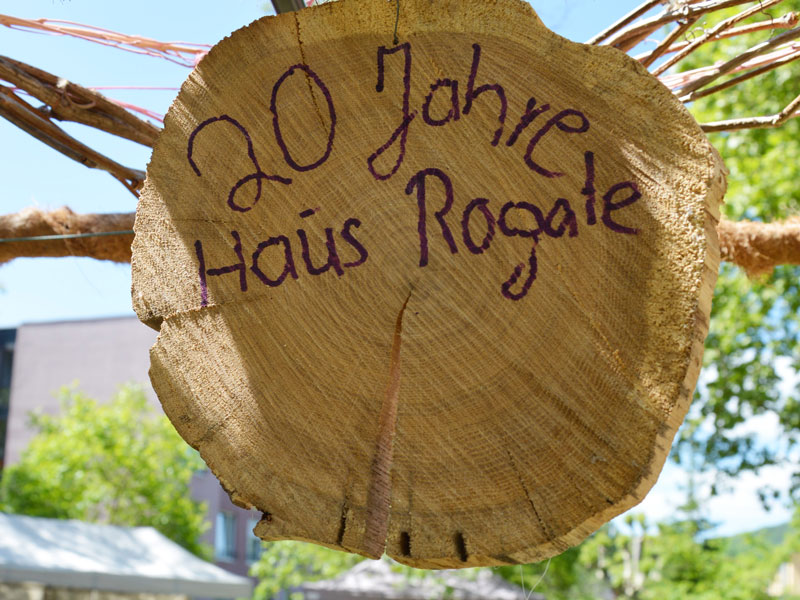 20 Jahre
Haus Rogate